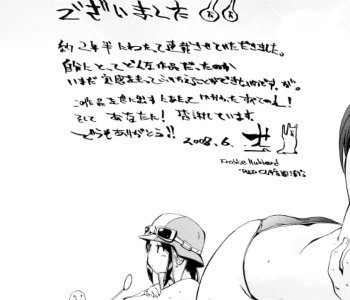 ございました
約2年半にわたって連載させていただきました。
自分にとってどんな作品だったのか
いまだ実感をもってふりかえることができないのですが。
この作品を世に出すにあたってかかわったすべての人!
そして あなたに! 感謝しています
どうもありがとう!!
2008. 6.
Freddie Hubbard